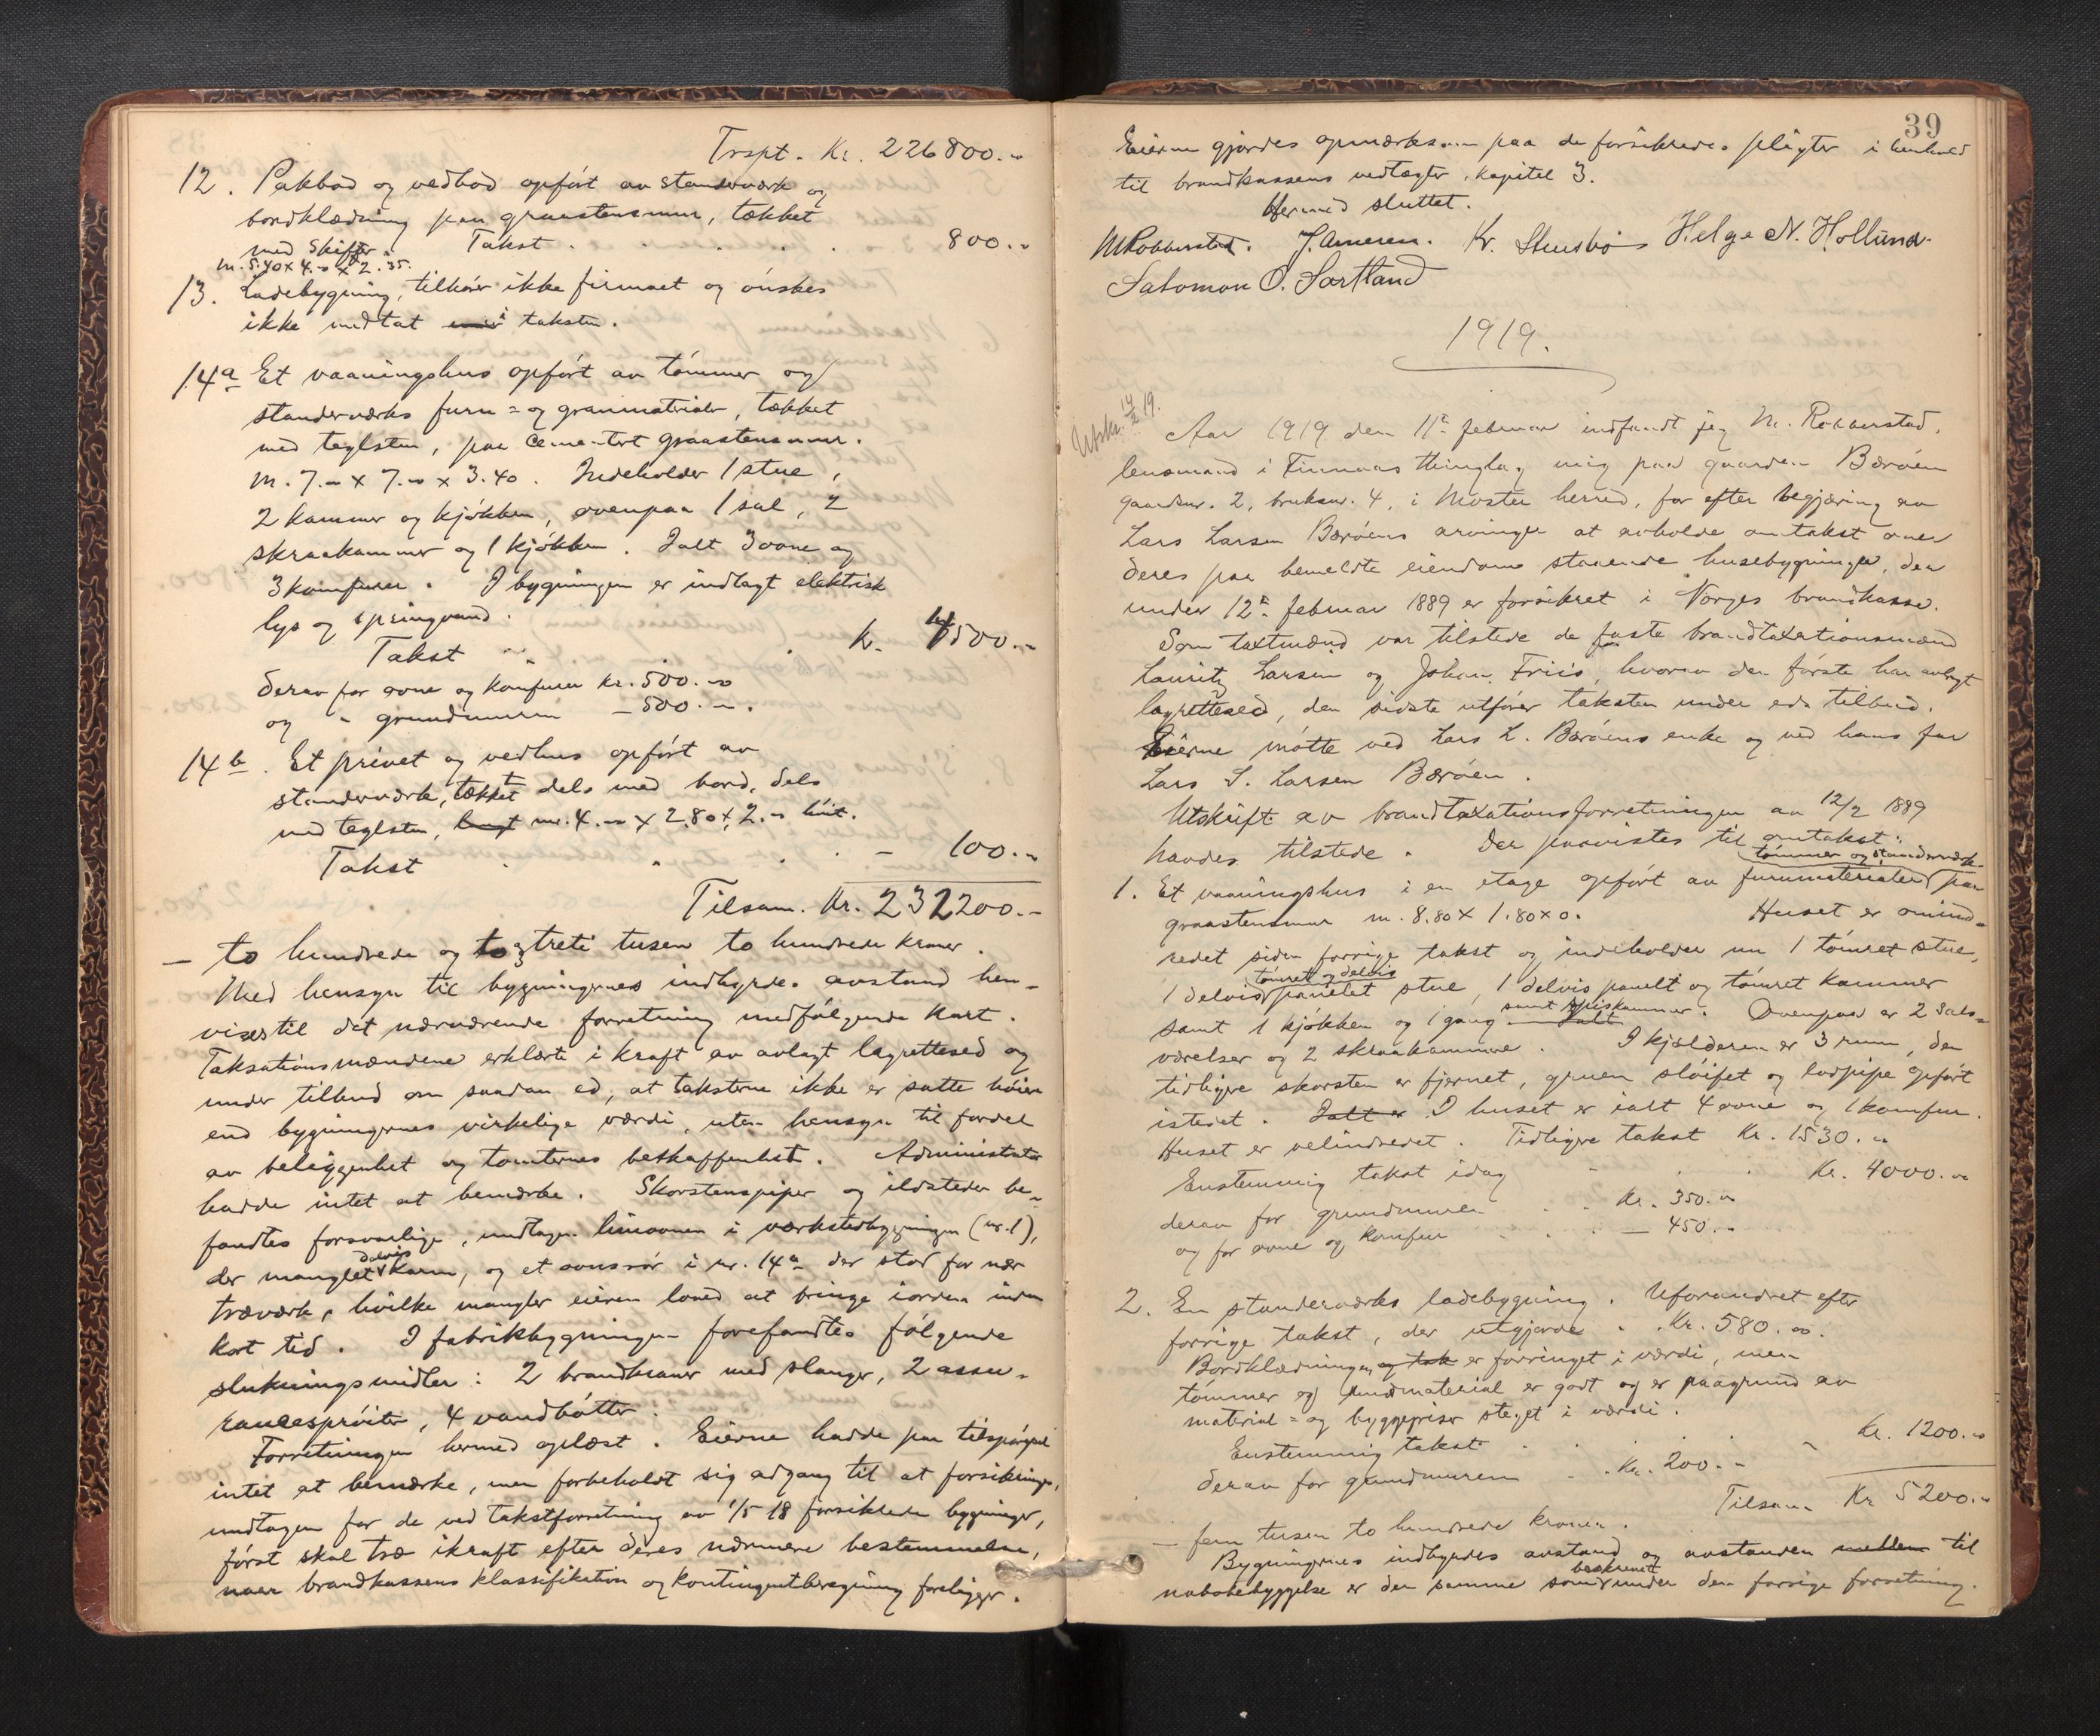 Trspt. Kr. 226800.-
12. Pakbod og vedbod opført av standerværk og
bordklædning paa graastensmur, tækket
med skiffer. Takst . . . . . 800.-
m. 5.40 x 4.- x 2.35.
13. Ladebygning, tilhører ikke firmaet og ønskes
ikke indtat i taksten.
14a Et vaaningshus opført av tømmer og
standerværks furu= og granmaterialer, tækket
med teglsten, paa cementert graastensmur.
m. 7.- x 7.- x 3.40. Indeholder 1 stue,
2 kammer og kjøkken, ovenpaa 1 sal, 2
skraakammer og 1 kjøkken. Ialt 3 ovne og
3 komfurer. I bygningen er indlagt elektrisk
lys og springvand.
Takst . . . kr. 4500.-
Derav for ovne og komfurer kr. 500.-
og - grundmuren - 500.-.
14b. Et privet og vedhus opført av
standerværk, tækket dels med bord, dels
med teglsten, m. 4.- x 2.80 x 2.- høit.
Takst . . . . - 100.-
Tilsam. Kr. 232200.-
— to hundrede og to og treti tusen to hundrede kroner.
Med hensyn til bygningernes indbyrdes avstand hen-
vises til det nærværende forretning medfølgende kart.
Taksationsmændene erklærte i kraft av avlagt lagrettesed og
under tilbud om saadan ed, at taksterne ikke er satte høiere
end bygningernes virkelige værdi, uten hensyn til fordel
av beliggenhet og tomternes beskaffenhet. Administrator
hadde intet at bemærke. Skorstenspiper og ildsteder be-
fandtes forsvarlige, undtagen limovnen i værkstedbygningen (nr. 1),
der manglet delvis karm, og et ovnsrør i nr. 14a der stod for nær
træværk, hvilke mangler eieren loved at bringe iorden inden
kort tid. I fabrikbygningen forefandtes følgende
slukningsmidler: 2 brandkraner med slanger, 2 assu-
rancesprøiter, 4 vandbøtter.
Forretningen hermed oplæst. Eierne hadde paa tilspørgsel
intet at bemærke, men forbeholdt sig adgang til at forsikringen,
undtagen for de ved takstforretning av 1/5 18 forsikrede bygninger,
først skal træ ikraft efter deres nærmere bestemmelse,
naar brandkassens klassifikation og kontingentberegning foreligger.
39
Eierne gjordes opmærksom paa de forsikredes pligter i henhold
til brandkassens vedtægter, kapitel 3.
Hermed sluttet.
M Robberstad. J. Arnesen. Kr. Stensbø Helge N. Hollund.
Salomon O. Sortland
1919.
Utskr. 14/2 19.
Aar 1919 den 11te februar indfandt jeg M. Robberstad,
lensmand i Finnaas thinglag mig paa gaarden Bærøen
gaardsnr. 2, bruksnr. 4, i Moster herred, for efter begjæring av
Lars Larsen Bærøens arvinger at avholde omtakst over
deres paa bemeldte eiendom staaende husebygninger, der
under 12te februar 1889 er forsikret i Norges brandkasse.
Som takstmænd var tilstede de faste brandtaxationsmænd
Lauritz Larsen og Johan Friis, hvorav den første har avlagt
lagrettesed, den sidste utfører taksten under eds tilbud.
Eierne møtte ved Lars L. Bærøens enke og ved hans far
Lars S. Larsen Bærøen.
Utskrift av brandtaxationsforretningen av 12/2 1889
havdes tilstede. Der paavistes til omtakst:
1. Et vaaningshus i en etage opført av tømmer og standerværk furumaterialer paa
graastensmur m. 8.80 x 1.80 x 0. Huset er omind-
redet siden forrige takst og indeholder nu 1 tømret stue,
1 delvis tømret og delvis panelet stue, 1 delvis panelt og tømret kammer
samt 1 kjøkken og 1 gang samt spiskammer. Ovenpaa er 2 sals-
værelser og 2 skraakammer. I kjelderen er 3 rum, den
tidligere skorsten er fjernet, gruen sløifet og lodpipe opført
istedet. Ialt er I huset er ialt 4 ovne og 1 komfur.
Huset er velindredet. Tidligere takst Kr. 1530.-
Enstemmig takst idag . . . Kr. 4000.-
derav for grundmuren . . Kr. 350.-
og for ovne og komfur . . . — 450.-
2. En standerværks ladebygning. Uforandret efter
forrige takst, der utgjorde . Kr. 580.-.
Bordklædningen og tak er forringet i værdi, men
tømmer og bundmaterial er godt og er paagrund av
material= og byggepriser steget i værdi.
Enstemmig takst . . . . Kr. 1200.-
derav for grundmuren . . Kr. 200.-
Tilsam. Kr 5200.-
— fem tusen to hundrede kroner.
Bygningernes indbyrdes avstand og avstanden mellem til
nabobebyggelse er den samme som beskrevet under den forrige forretning.